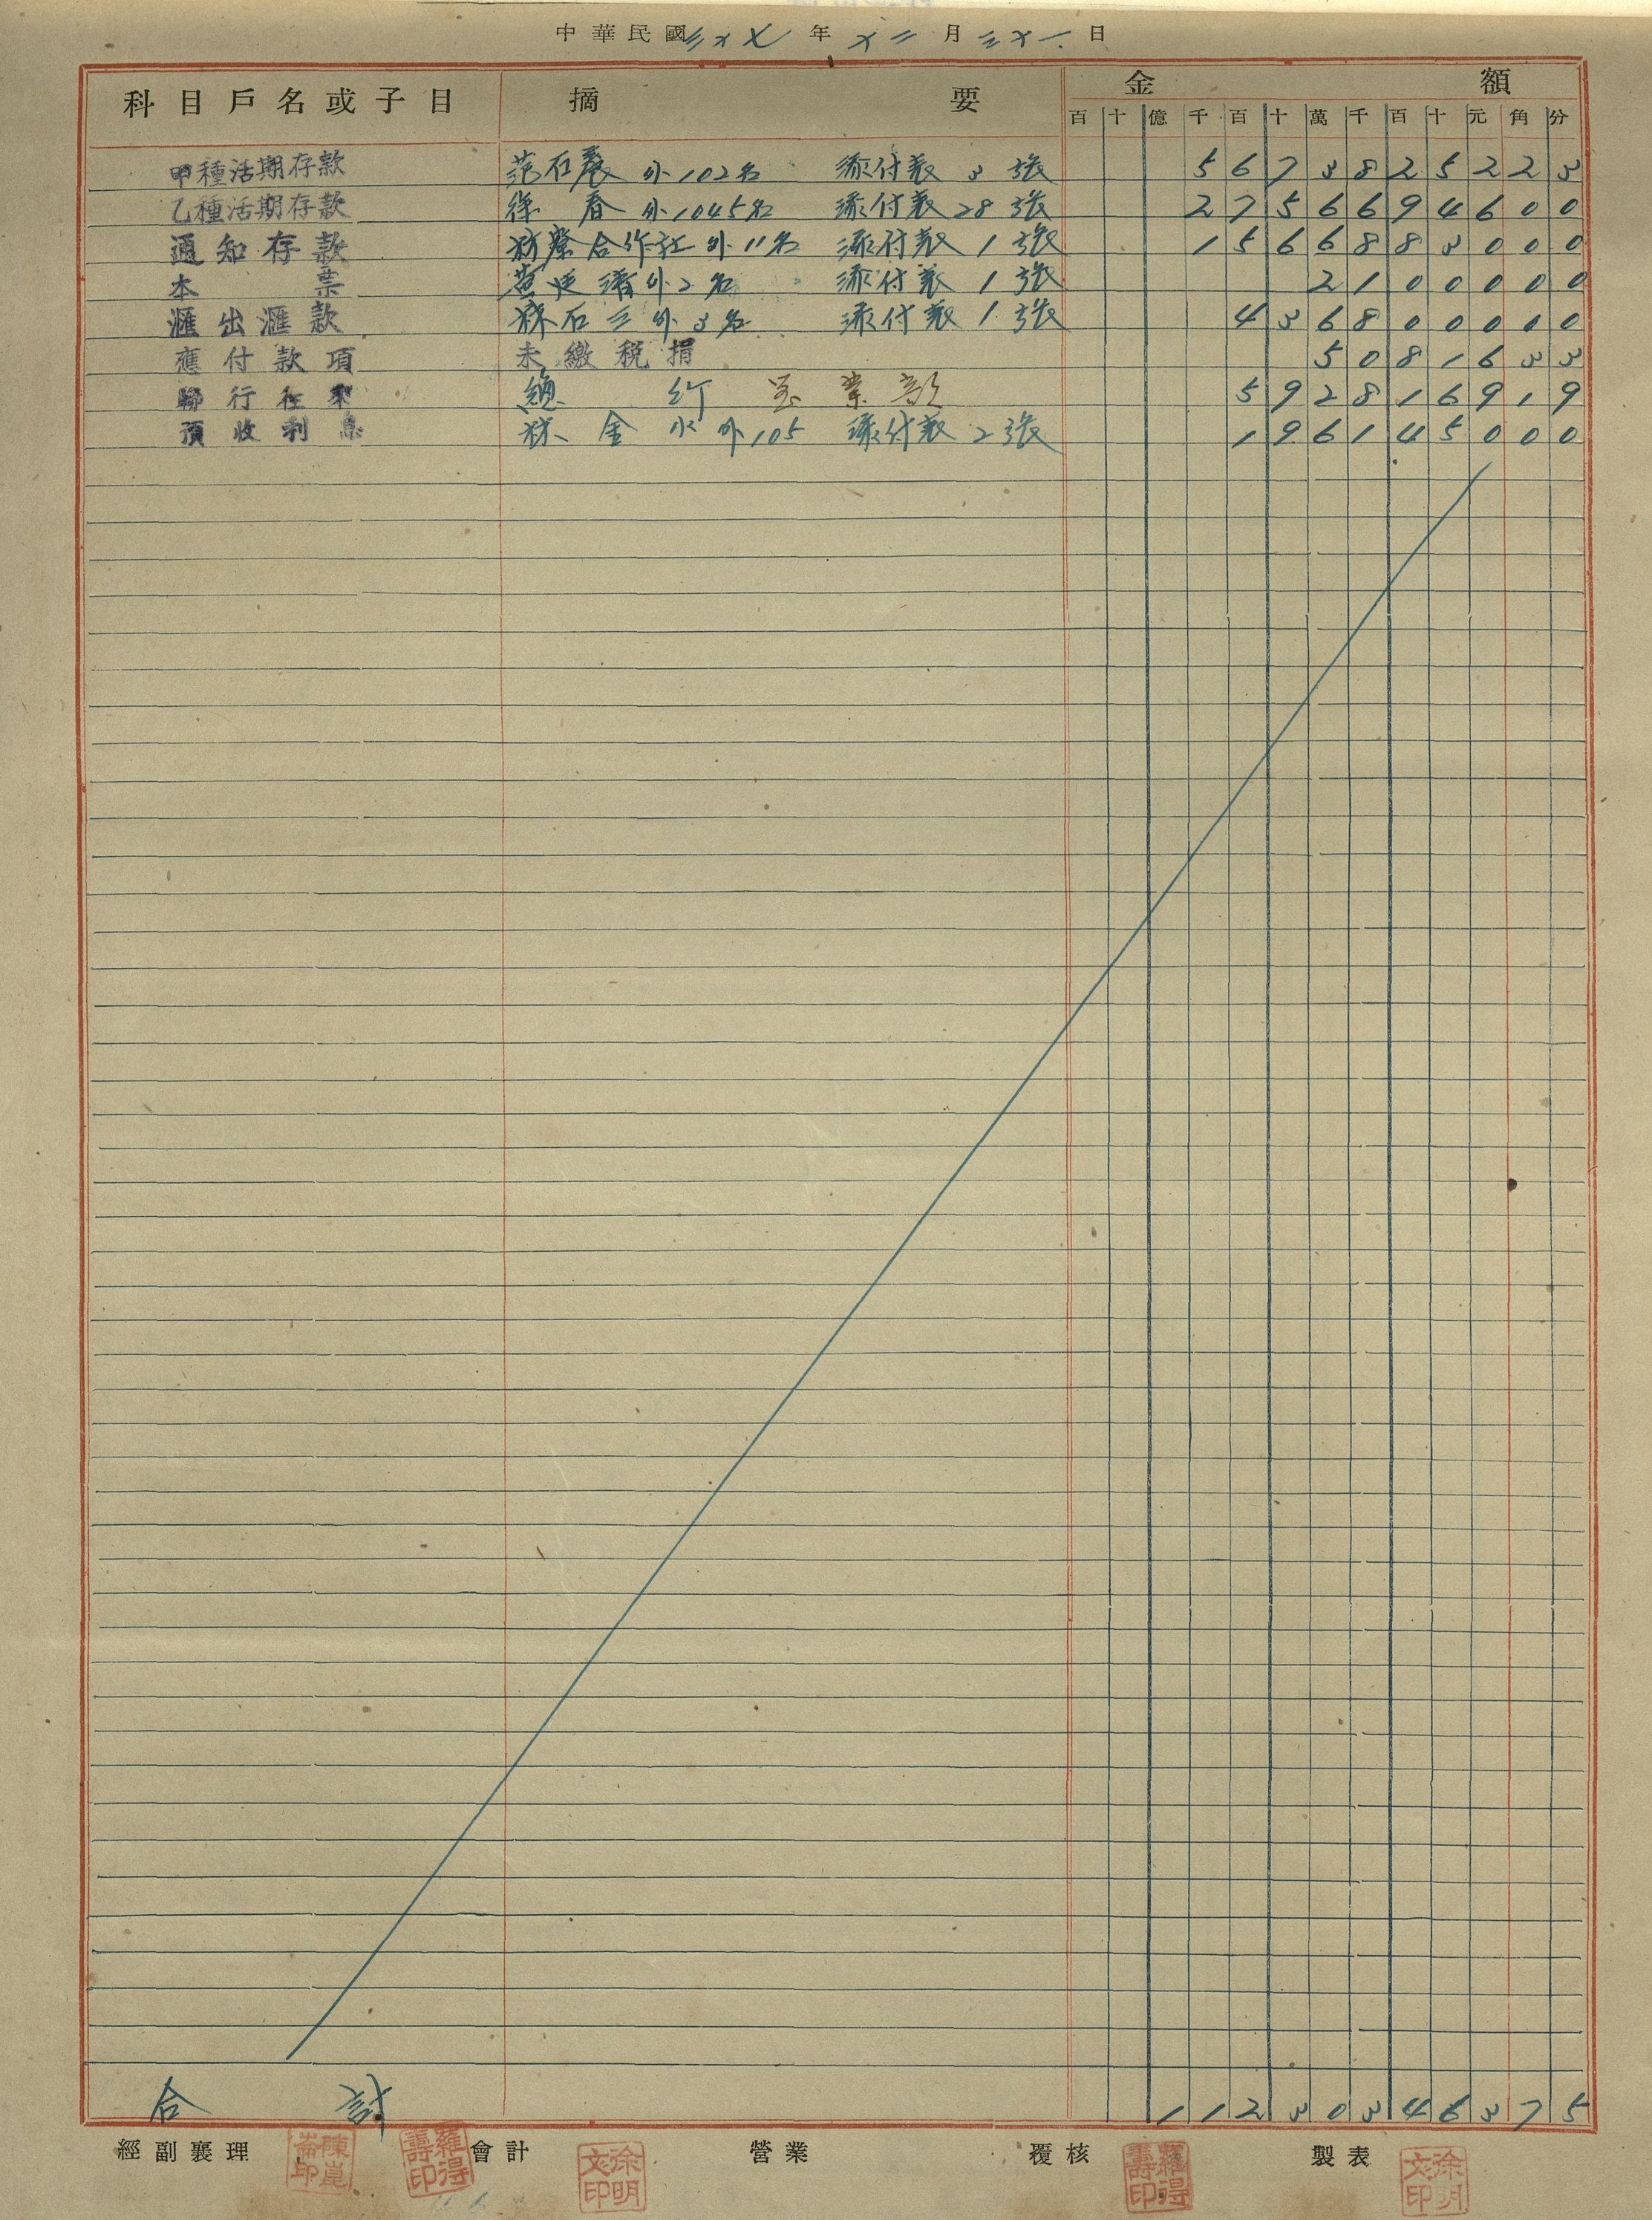 中華民國三十七年十二月三十一日
科目戶名或子目 摘要 金額
百 十 億 千 百 十 萬 千 百 十 元 角 分
甲種活期存款 范石 外102名 添付表 3 張 5 6 7 3 8 2 5 2 2 3
乙種活期存款 徐 春 外1045名 添付表 28 張 2 7 5 6 6 9 4 6 0 0
通知存款 枋寮合作社 外11名 添付表 1 張 1 5 6 6 8 8 3 0 0 0
本票 黃 外2名 添付表 1 張 2 1 0 0 0 0 0
滙出滙款 林石三 外3名 添付表 1 張 4 3 6 8 0 0 0 0 0
應付款項 未繳稅捐 5 0 8 1 6 3 3
聯行往來 總行 營業部 5 9 2 8 1 6 9 1 9
預收利息 林金水 外105 添付表 2 張 1 9 6 1 4 5 0 0 0
合計 1 1 2 3 0 3 4 6 3 7 5
經副襄理 陳崑崙印 羅得壽印 會計 徐明文印 營業 覆核 羅得壽印 製表 徐明文印